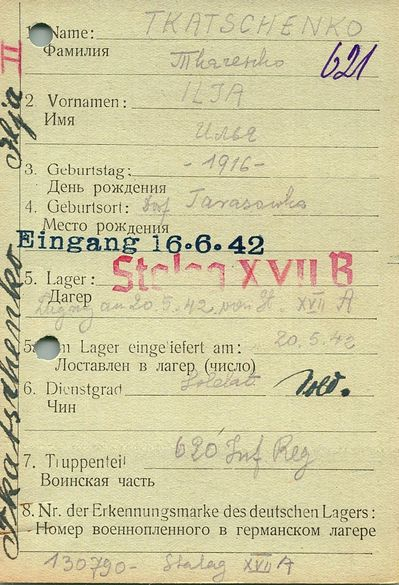 1. Name: TKATSCHENKO
Фамилия
Ткаченко 621
ILJA
2 Vornamen:
Имя
Илья
3. Geburtstag: - 1916 -
День рождения
4. Geburtsort: Dorf Tarasowka
Место рождения
Eingang 16.6.42
5. Lager: Stalag XVII B
Лагер
Zugang am 20.5.42 von XVII A
5a Im Lager eingeliefert am: 20.5.42
Доставлен в лагер (число)
6. Dienstgrad Soldat Sold.
Чин
7. Truppenteil 620 Inf Reg
Воинская часть
8. Nr. der Erkennungsmarke des deutschen Lagers:
Номер военнопленного в германском лагере
130790- Stalag XVII A
Tkatschenko Ilja II